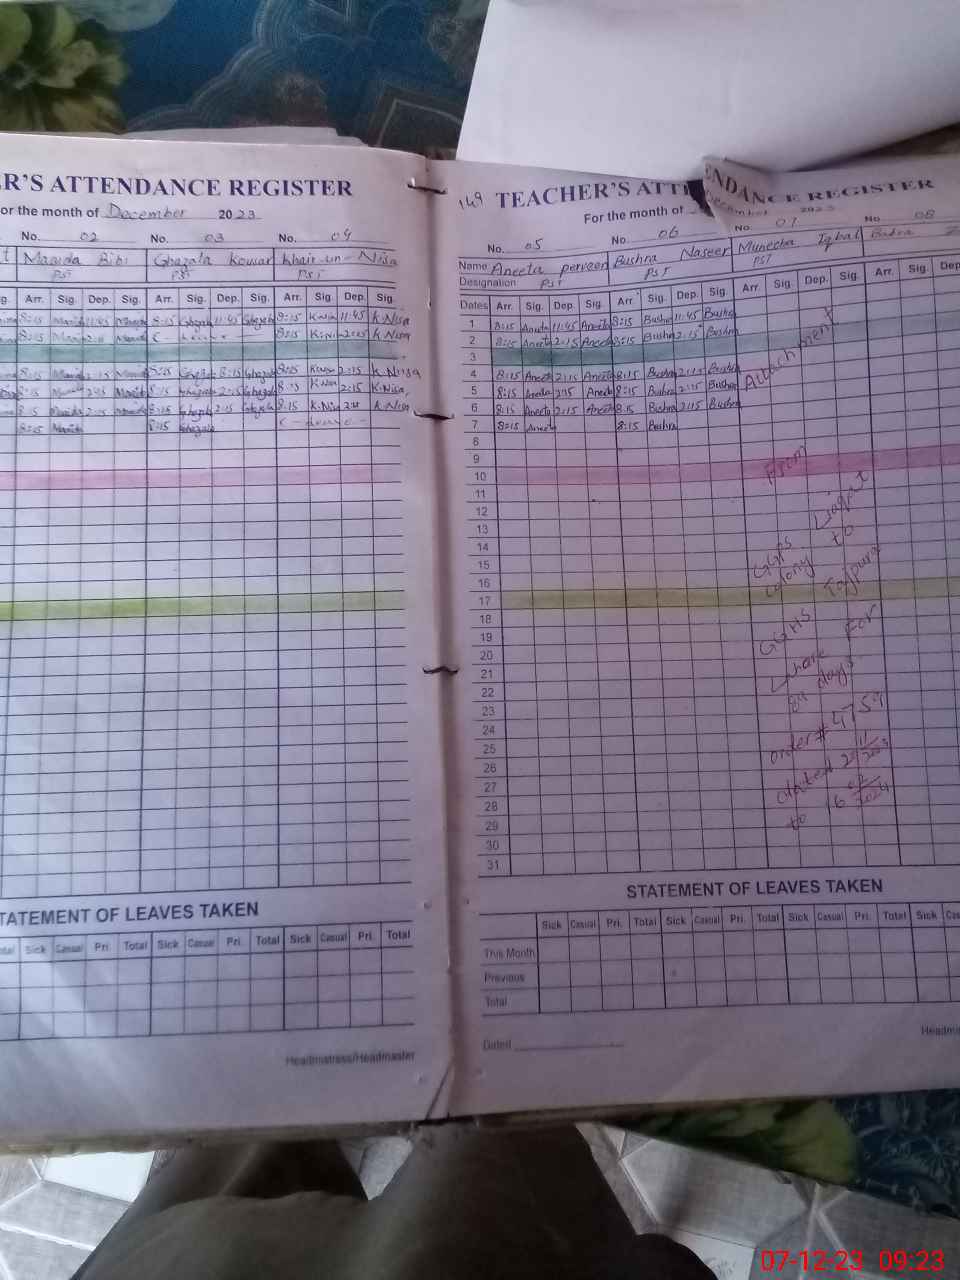 R'S ATTENDANCE REGISTER
or the month of December 2023
No. 02 No. 03 No. 04
Bibi Ghazala Kousar Khair-un-Nisa
PST PST PST
Arr. Sig. Dep. Sig. Arr. Sig. Dep. Sig. Arr. Sig. Dep. Sig.
8:15 11:45 8:15 11:45 8:15 K.Nisa 11:45 K.Nisa
8:15 K.Nisa 2:15 K.Nisa
8:15 2:15 8:15 2:15 K.Nisa
8:15 8:15 2:15 8:15 K.Nisa 2:15 K.Nisa
8:15 2:15 8:15 2:15 8:15 K.Nisa K.Nisa
8:15 8:15 Ghazala
TATEMENT OF LEAVES TAKEN
Sick Casual Pri. Total Sick Casual Pri. Total Sick Casual Pri. Total
Headmistress/Headmaster
149 TEACHER'S ATTENDANCE REGISTER
For the month of December 2023
No. 05 No. 06 No. 07 No. 08
Name Aneeta Perveen Bushra Naseer Muneeba Iqbal Bushra
Designation PST PST PST
Dates Arr. Sig. Dep. Sig. Arr. Sig. Dep. Sig. Arr. Sig. Dep. Sig. Arr. Sig. Dep.
1 8:15 Aneeta 11:45 Aneeta 8:15 Bushra 11:45 Bushra
2 8:15 Aneeta 2:15 Aneeta 8:15 Bushra 2:15 Bushra
3
4 8:15 Aneeta 2:15 Aneeta 8:15 Bushra 2:15 Bushra
5 8:15 Aneeta 2:15 Aneeta 8:15 Bushra 2:15 Bushra
6 8:15 Aneeta 2:15 Aneeta 8:15 Bushra 2:15 Bushra
7 8:15 Aneeta 8:15 Bushra
8
9
10
11
12
13
14
15
16
17
18
19
20
21
22
23
24
25
26
27
28
29
30
31
Attachment
From
GGPS Liaqat
Colony to
GGHS Tajpura
Lahore For
89 days
order # 4759
dated 20/11/2023
to 16/02/2024
STATEMENT OF LEAVES TAKEN
Sick Casual Pri. Total Sick Casual Pri. Total Sick Casual Pri. Total Sick
This Month
Previous
Total
Dated
07-12-23 09:23